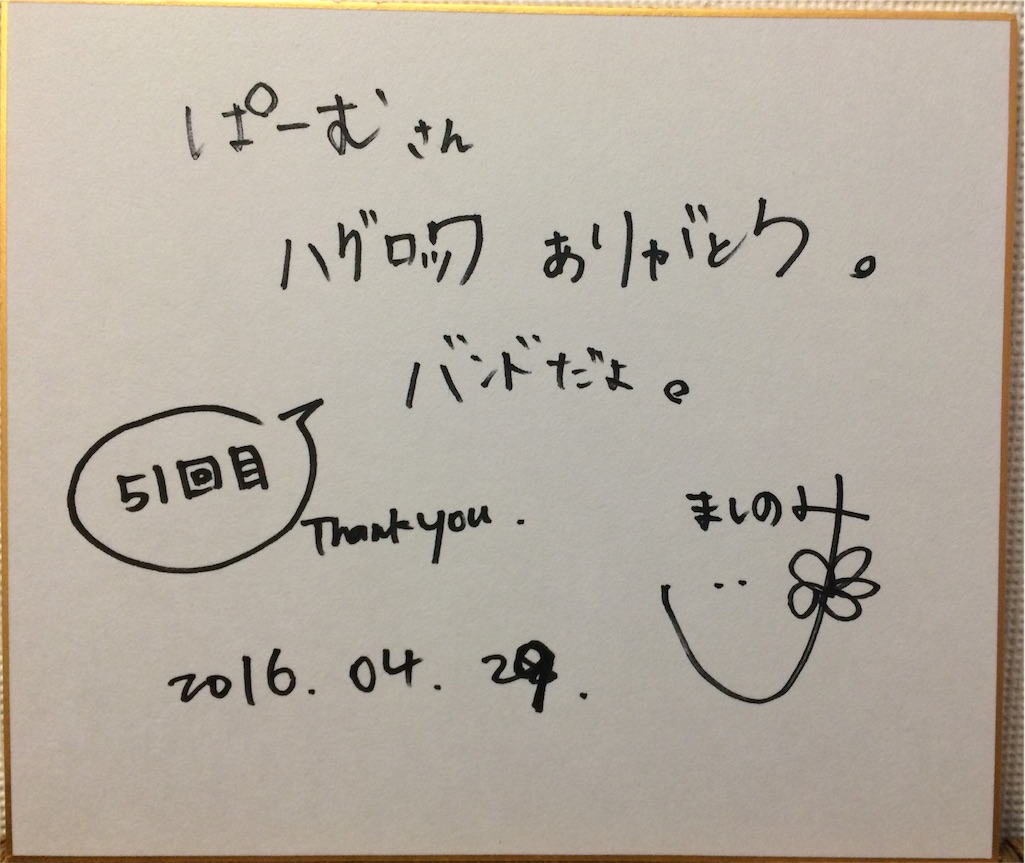 ぱーむさん
ハグロック ありがとう。
バンドだよ。
51回目
Thank you.
ましのみ
2016.04.29.